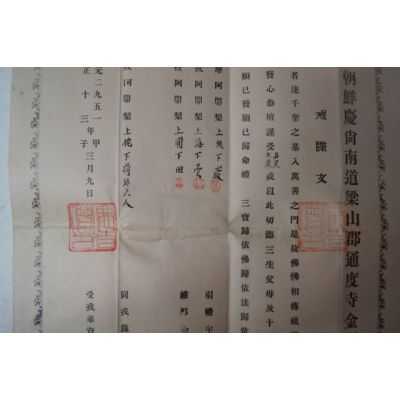 朝鮮慶尙南道梁山郡通度寺金
戒牒文
者達千聖之基入萬善之門是故佛佛相傳祖
發心叅壇謹受
戒以此切德三生父母及十
願已發願已歸命禮 三寶歸依佛歸依法歸依
阿闍梨上
下
引禮
阿闍梨上海下曇
維那
阿闍梨上圓下田
阿闍梨上
下荷外六人
同戒錄
元二九五一年甲
正十三 子
三月九日
受戒弟資